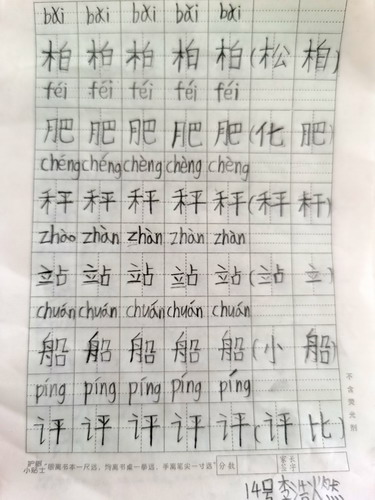 bǎi bǎi bǎi bǎi bǎi
柏 柏 柏 柏 柏 (松 柏)
féi féi féi féi féi
肥 肥 肥 肥 肥 (化 肥)
chéng chéng chèng chèng chèng
秤 秤 秤 秤 秤 (秤 杆)
zhào zhàn zhàn zhàn zhàn
站 站 站 站 站 (站 立)
chuán chuán chuán chuán chuán
船 船 船 船 船 (小 船)
píng píng píng píng píng
评 评 评 评 评 (评 比)
不含荧光剂
护眼小贴士 "眼离书本一尺远，胸离书桌一拳远，手离笔尖一寸远" 分数 家长签字
14号 李 然